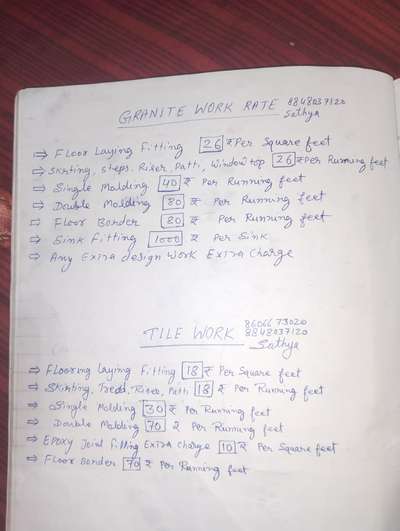 GRANITE WORK RATE 8848037120
Sathya
⇒ Floor Laying Fitting 26 ₹ Per Square feet
⇒ Skirting, steps, Riser, Patti, Window top 26 ₹ Per Running feet
⇒ Single Molding 40 ₹ Per Running feet
⇒ Double Molding 80 ₹ Per Running feet
⇒ Floor Border 80 ₹ Per Running feet
⇒ Sink Fitting 1000 ₹ Per Sink
⇒ Any Extra design Work Extra Charge
TILE WORK 8606673020
8848037120
Sathya
⇒ Flooring Laying Fitting 18 ₹ Per Square feet
⇒ Skirting, Tredd, Riser, Patti 18 ₹ Per Running feet
⇒ Single Molding 30 ₹ Per Running feet
⇒ Double Molding 70 ₹ Per Running feet
⇒ EPOXY Joint filling Extra Charge 10 ₹ Per Square feet
⇒ Floor Border 70 ₹ Per Running feet